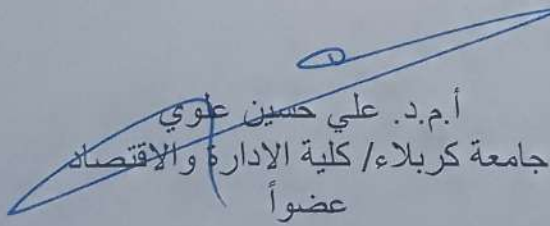 أ.م.د. علي حسين علوي
جامعة كربلاء/ كلية الادارة والاقتصاد
عضواً